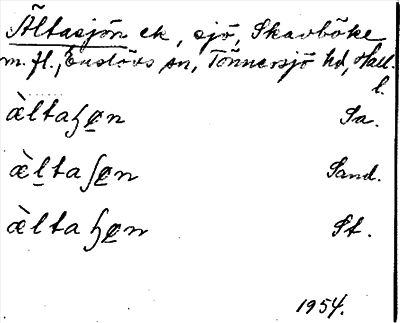 Ältasjön ek, sjö, Skavböke
m. fl., Enslövs sn, Tönnersjö hd, Hall.
l.
æ̀ltaɧɵn Sa.
æ̀ltaʃɵn Sand.
æ̀ltaɧɵn St.
1954.